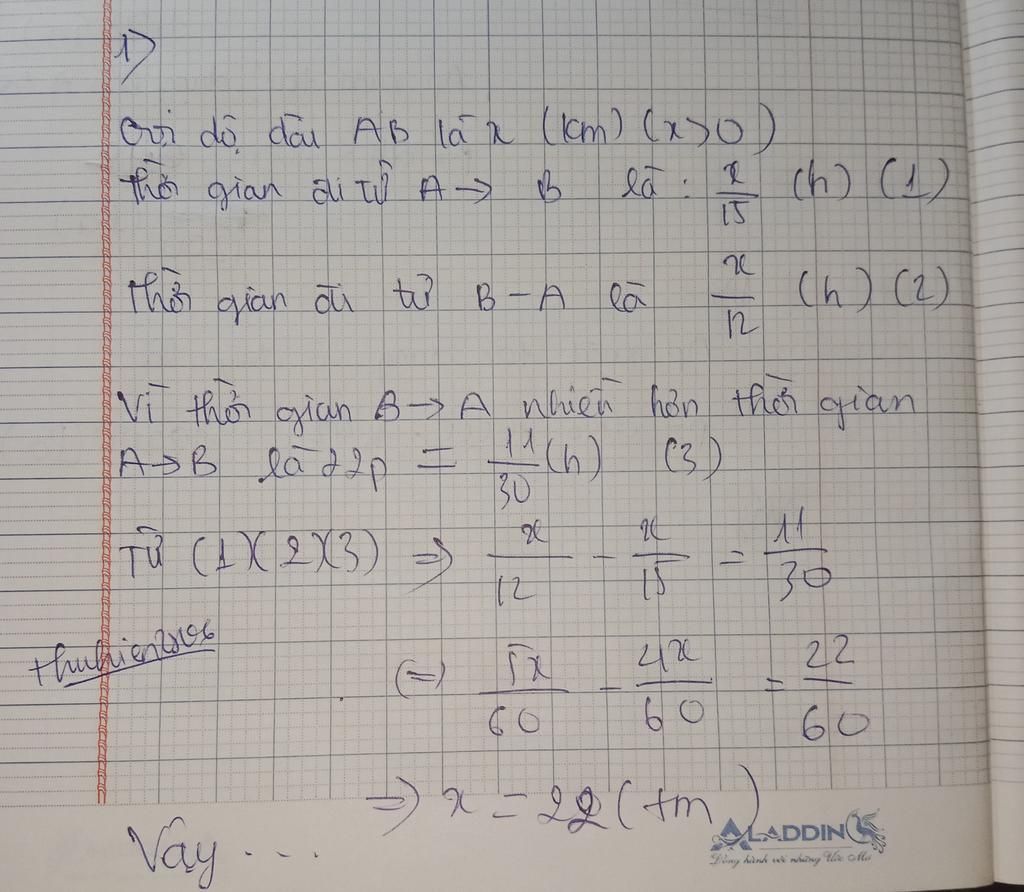 1)
Gọi độ dài AB là x (km) (x>0)
Thời gian đi từ A → B là : x/15 (h) (1)
Thời gian đi từ B - A là x/12 (h) (2)
Vì thời gian B → A nhiều hơn thời gian
A → B là 22p = 11/30 (h) (3)
Từ (1)(2)(3) => x/12 - x/15 = 11/30
thuhien
(=) 5x/60 - 4x/60 = 22/60
=> x = 22 (tm)
Vậy ...
ALADDIN
Đồng hành với những Ước Mơ